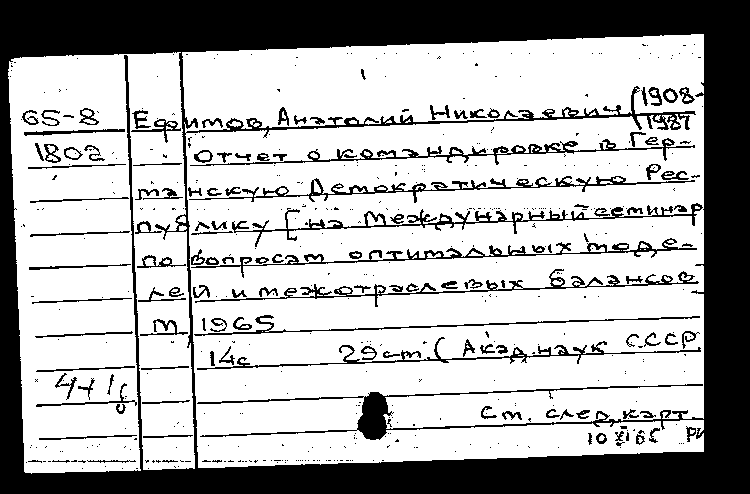 65-8 Ефимов, Анатолий Николаевич (1908-
1987
1802 Отчет о командировке в Гер-
манскую Демократическую Рес-
публику [на Междунарный семинар
по вопросам оптимальных моде-
лей и межотраслевых балансов
М, 1965
14с 29см. (Акад. наук СССР
См. след. карт.
10 XI 65